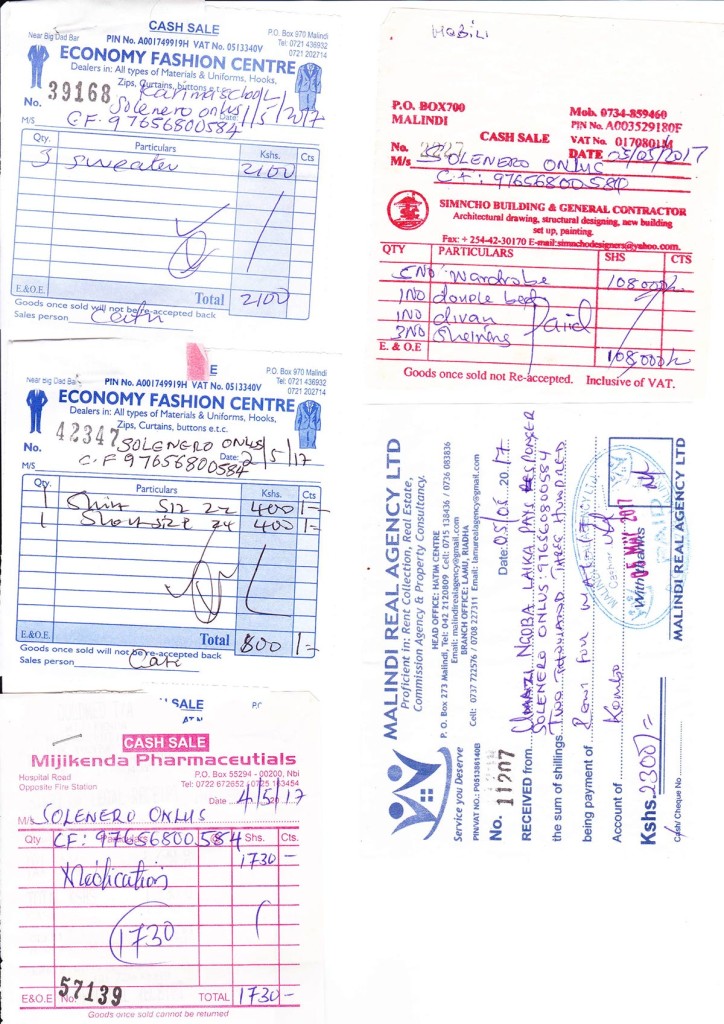 CASH SALE
P.O. Box 970 Malindi
Near Big Dad Bar
PIN No. A001749919H VAT No. 0513340V
Tel: 0721 436932
0721 202714
ECONOMY FASHION CENTRE
Dealers in: All types of Materials & Uniforms, Hooks,
Zips, Curtains, buttons e.t.c.
Karima school
No. 39168 Solenero onlus Date: 1/5/2017
M/S C.F. 97656800584
Qty. Particulars Kshs. Cts
3 sweater 2100
E.&O.E. Total 2100
Goods once sold will not be re-accepted back
Sales person
E
P.O. Box 970 Malindi
Near Big Dad Bar
PIN No. A001749919H VAT No. 0513340V
Tel: 0721 436932
0721 202714
ECONOMY FASHION CENTRE
Dealers in: All types of Materials & Uniforms, Hooks,
Zips, Curtains, buttons e.t.c.
No. 42347 SOLENERO ONLUS Date: 2/5/17
M/S C.F 97656800584
Qty. Particulars Kshs. Cts
1 Shirt Siz 22 400 -
1 Short size 24 400 -
E.&O.E. Total 800 -
Goods once sold will not be re-accepted back
Sales person
SALE
CASH SALE
Mijikenda Pharmaceutials
Hospital Road
P.O. Box 55294 - 00200, Nbi
Opposite Fire Station
Tel: 0722 672652 / 0725 163454
Date 4/5/17
M/s SOLENERO ONLUS
Qty CF: 97656800584 Shs. Cts.
Medication 1730 -
1730
E&O.E No. 57139 TOTAL 1730 -
Goods once sold cannot be returned
MOBILI
P.O. BOX700
MALINDI
Mob. 0734-859460
PIN No. A003529180F
CASH SALE
VAT No. 0170801M
No. DATE 05/05/2017
M/s SOLENERO ONLUS
C.F: 97656800584
SIMNCHO BUILDING & GENERAL CONTRACTOR
Architectural drawing, structural designing, new building
set up, painting.
Fax: + 254-42-30170 E-mail:simnchodesigners@yahoo.com.
QTY PARTICULARS SHS CTS
5NO wardrobe 108000/=
1NO double bed
1NO divan Paid
3NO
E. & O.E 108000/=
Goods once sold not Re-accepted. Inclusive of VAT.
MALINDI REAL AGENCY LTD
Proficient in: Rent Collection, Real Estate,
Commission Agency & Property Consultancy.
HEAD OFFICE: HATIM CENTRE
P. O. Box 273 Malindi, Tel: 042 2120809 Cell: 0715 138436 / 0736 083836
Email: malindirealagency@gmail.com
BRANCH OFFICE: LAMU, RIADHA
Cell: 0737 722576 / 0708 227311 Email: lamurealagency@gmail.com
Service you Deserve
PIN/VAT NO.: P051386140B
No. 11207 Date: 05.05.2017
RECEIVED from UMAZI NGOBA LAIKA PAYS
SOLENERO ONLUS: 97656800584
the sum of shillings TWO THOUSAND THREE HUNDRED
being payment of Rent for
Account of Kombo
Cashier
05 MAY 2017
PAID
With thanks
Kshs. 2300/=
Cash/ Cheque No
MALINDI REAL AGENCY LTD